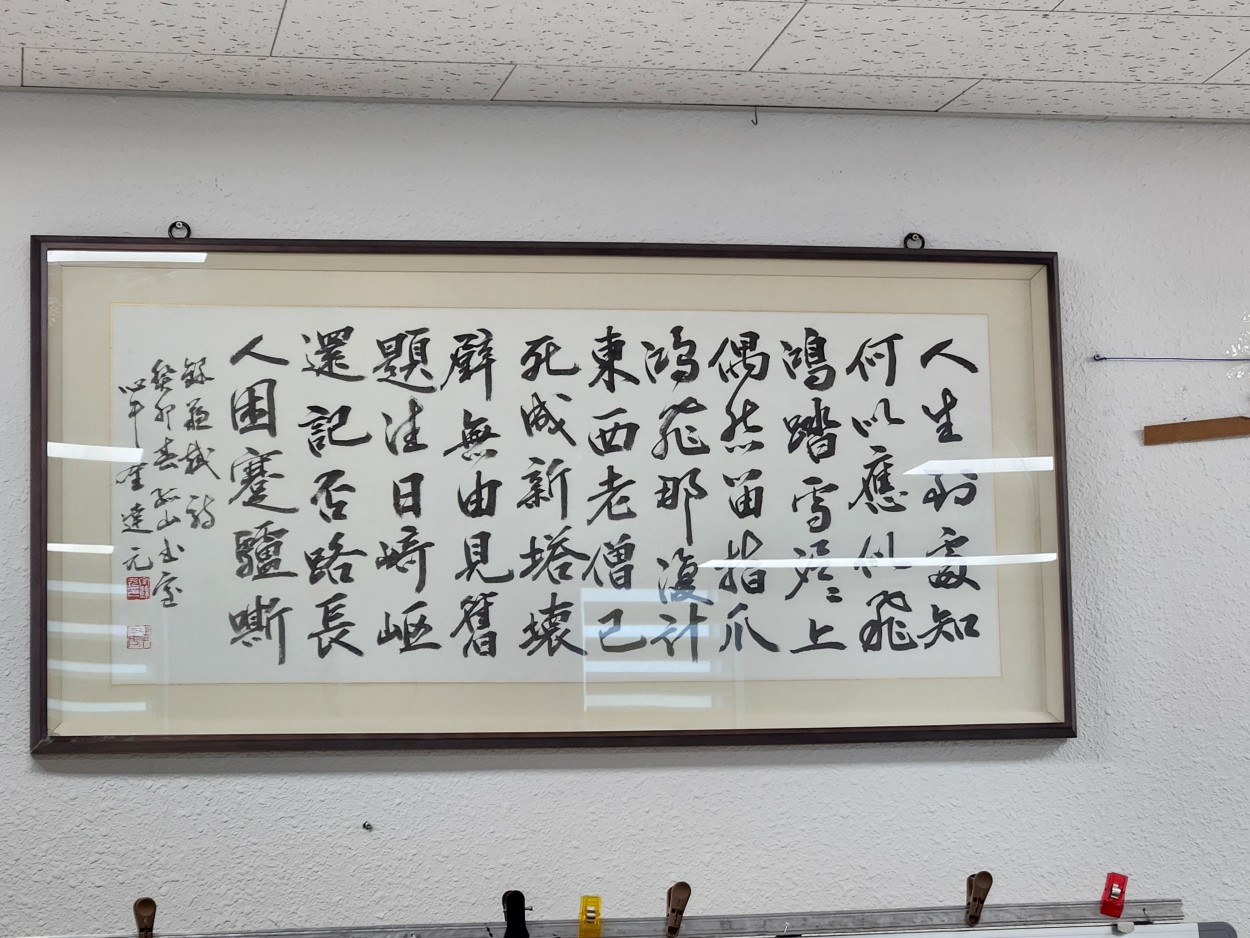 人生到處知
何以應似飛
鴻踏雪泥〻上
偶然留指爪
鴻飛那復計
東西老僧已
死成新塔壞
壁無由見舊
題往日崎嶇
還記否路長
人困蹇驢嘶
錄蘇軾詩
癸卯春山書室
達元